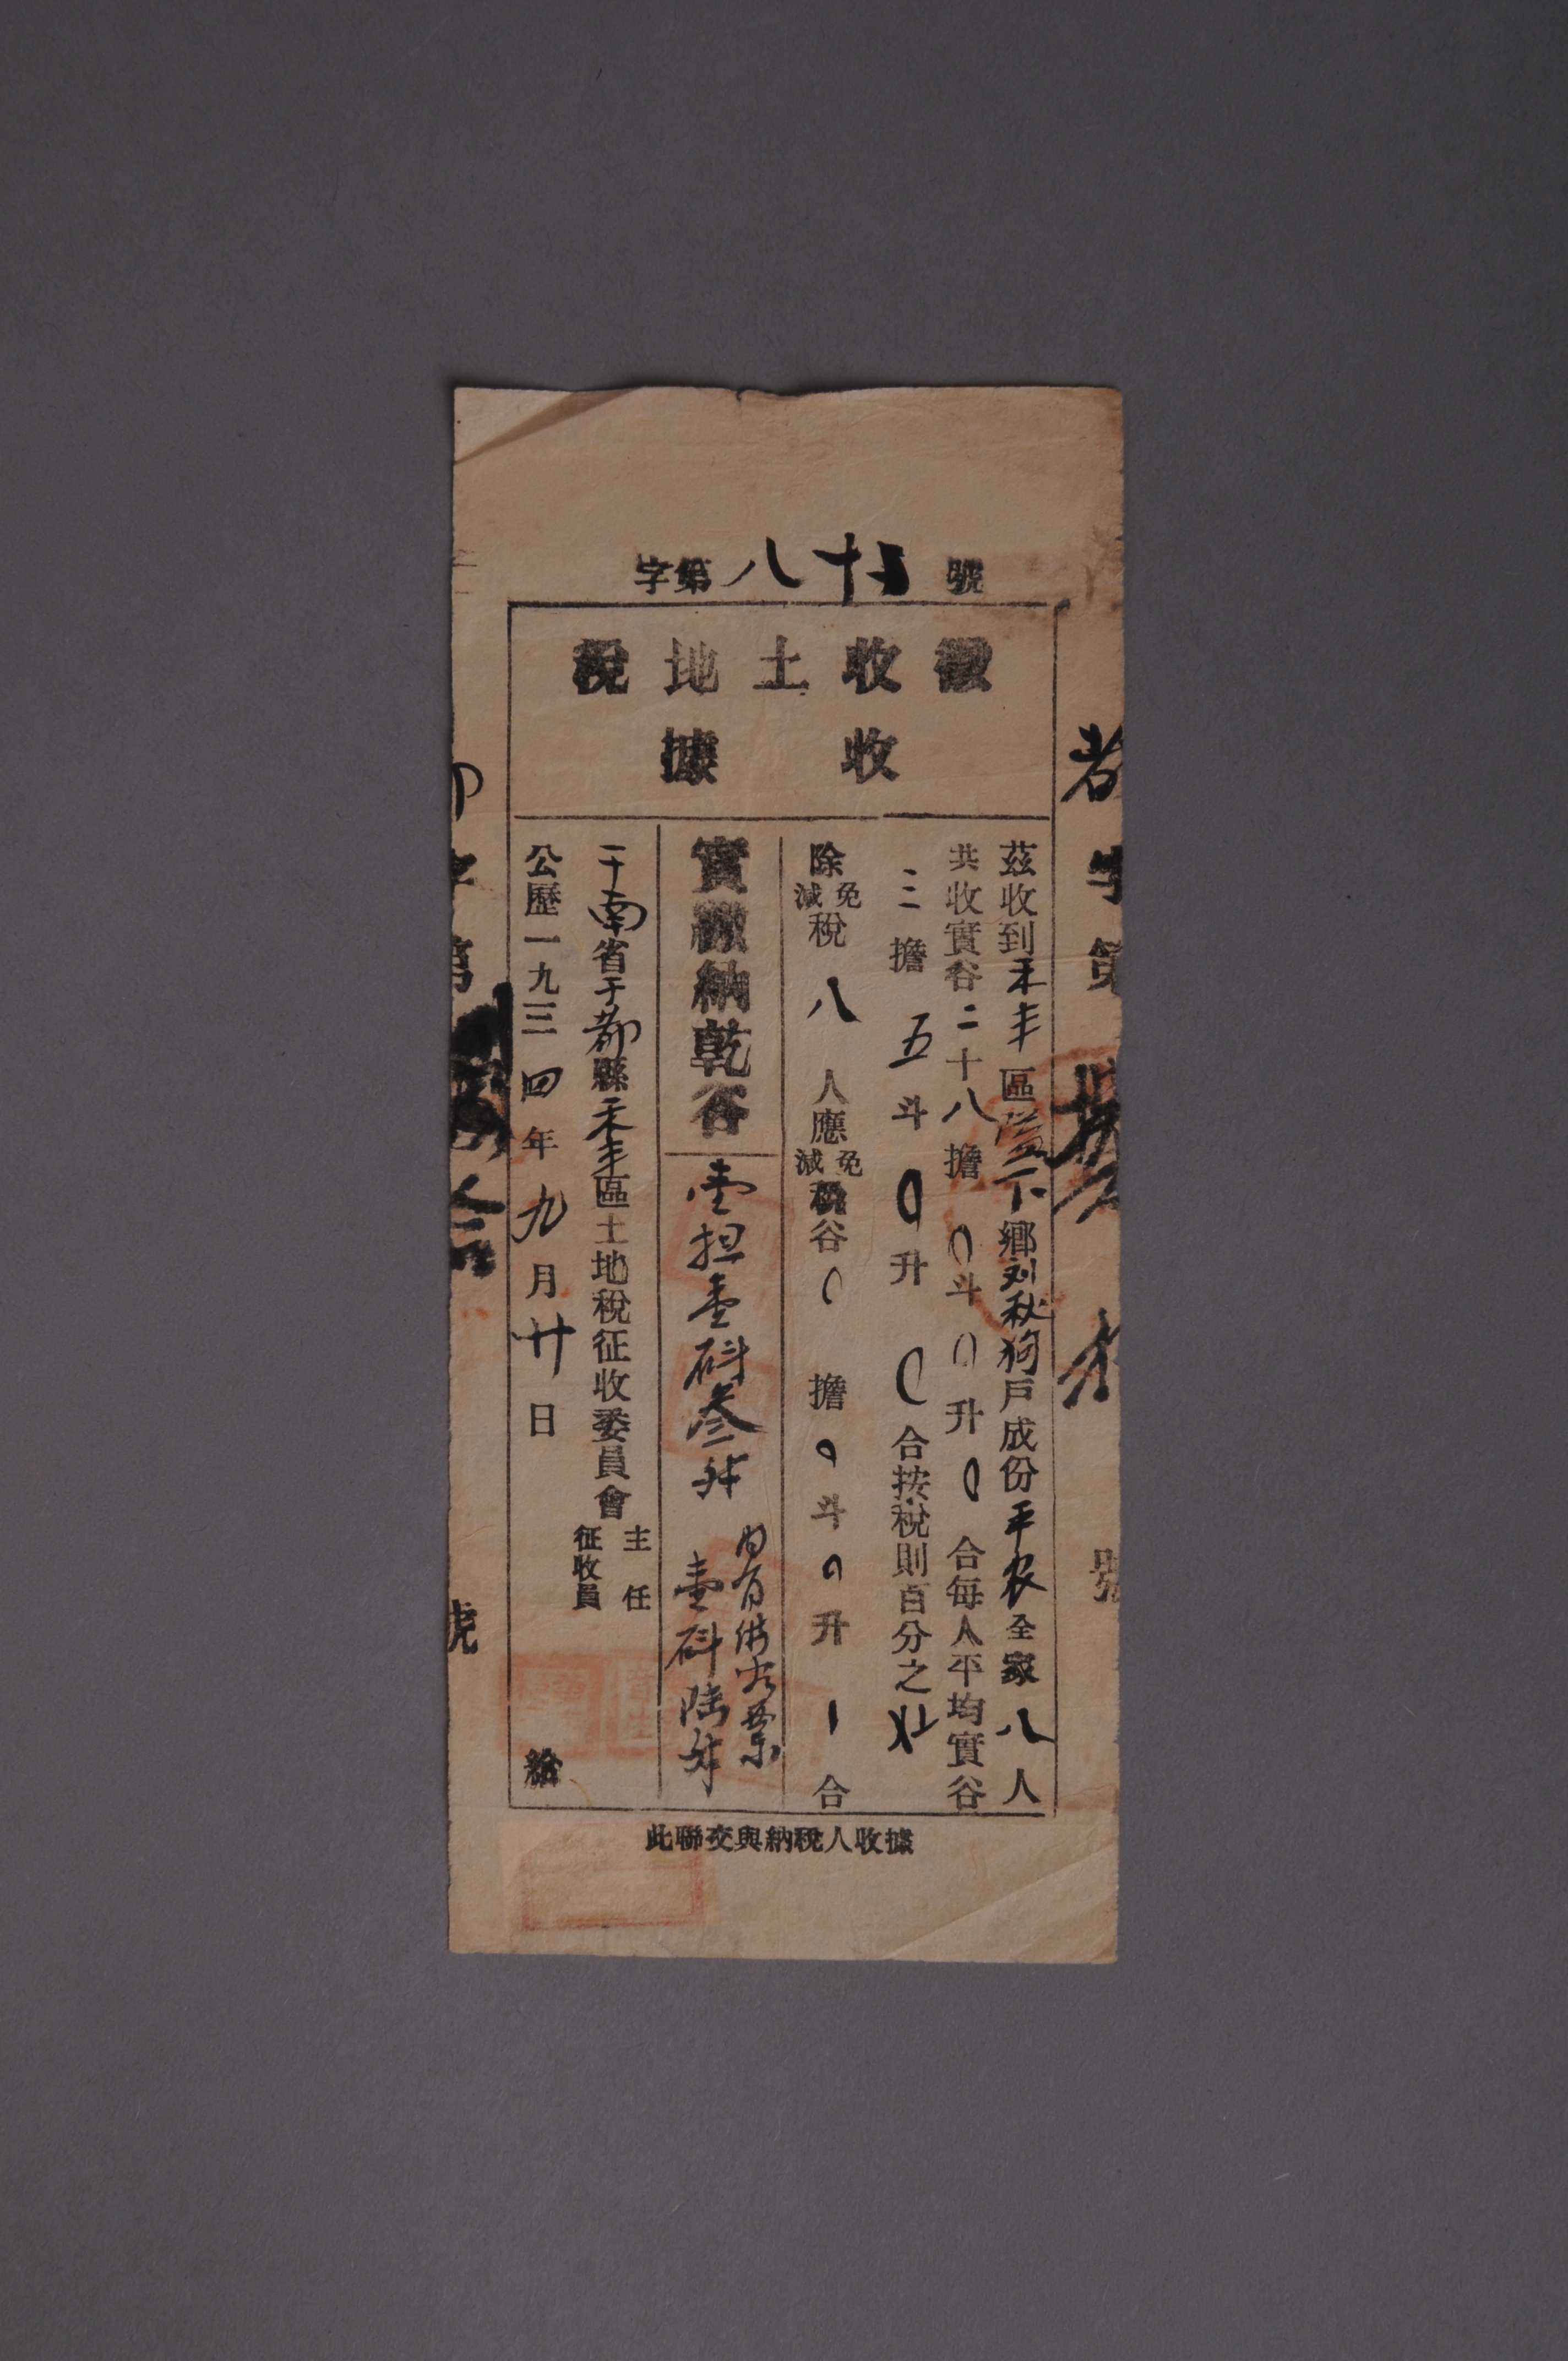 字第八十 號
徵收土地稅
收據
茲收到禾丰區 下鄉刘秋狗戶成份平农全家八人
共收實谷二十八擔0斗0升0合每人平均實谷
三擔五斗0升0合按稅則百分之
除免減稅八人應免減稅谷0擔0斗0升1合
實繳納乾谷 壹担壹斗叁升
內有借谷票
壹斗陆升
于南省于都縣禾丰區土地稅征收委員會 主任 征收員
公歷一九三四年九月廿日 給
此聯交與納稅人收據
都字第 號
字第 拾 號